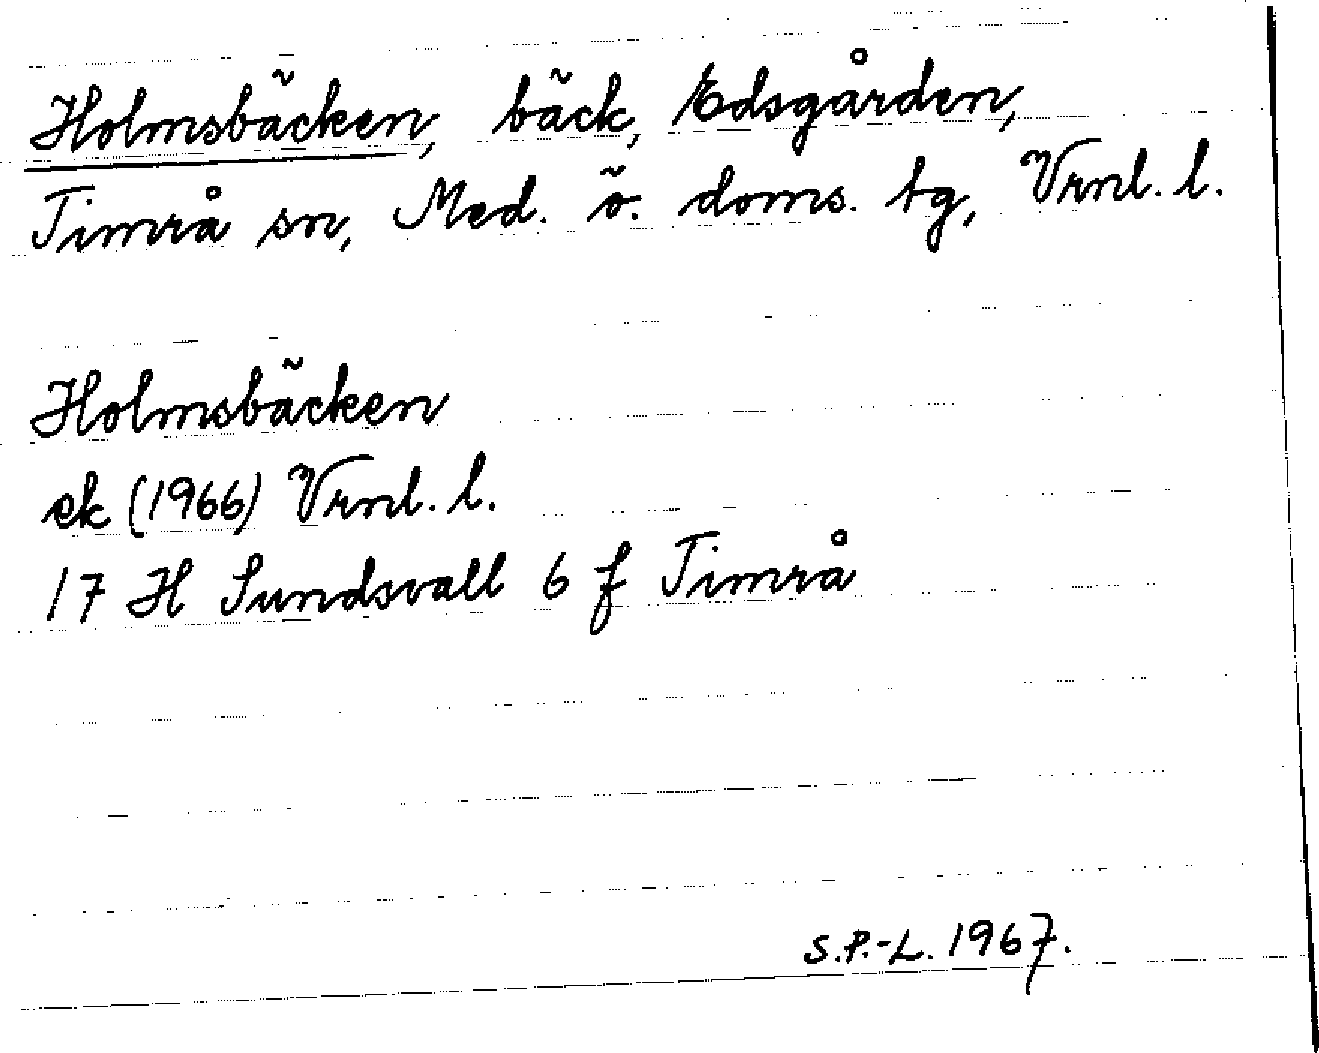 Holmsbäcken, bäck, Edsgården,
Timrå sn, Med. ö. doms. tg, Vrnl. l.
Holmsbäcken
ek (1966) Vrnl. l.
17 H Sundsvall 6 f Timrå
S.P.-L. 1967.